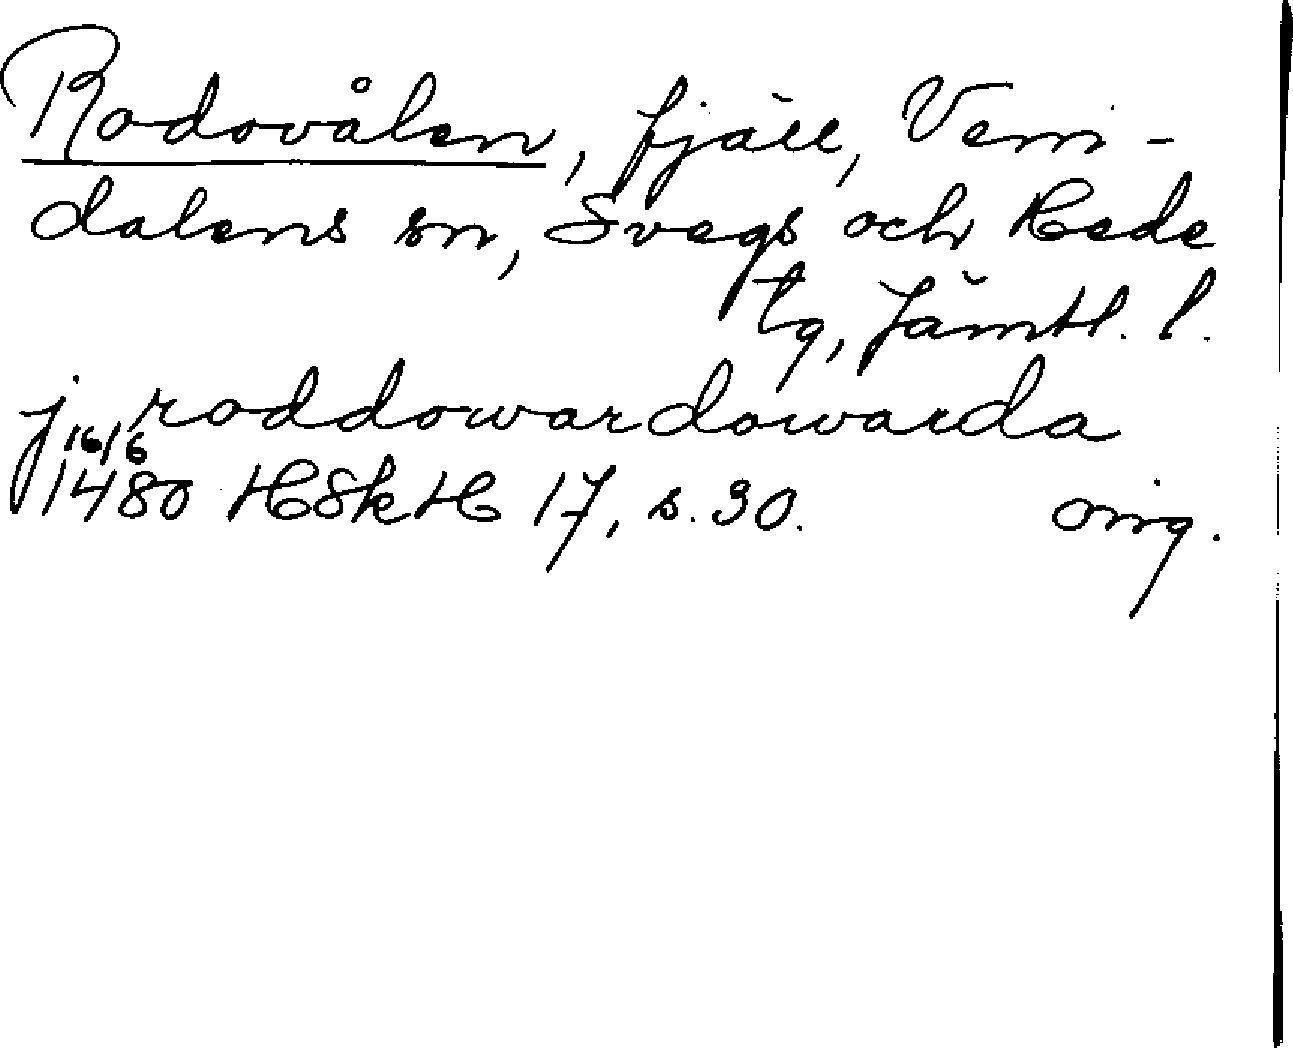 Rodovålen, fjäll, Vem-
dalens sn, Svegs och Hede
tg, Jämtl. l.
j roddowardowarda
16/6
1480 HSkH 17, s. 30. orig.